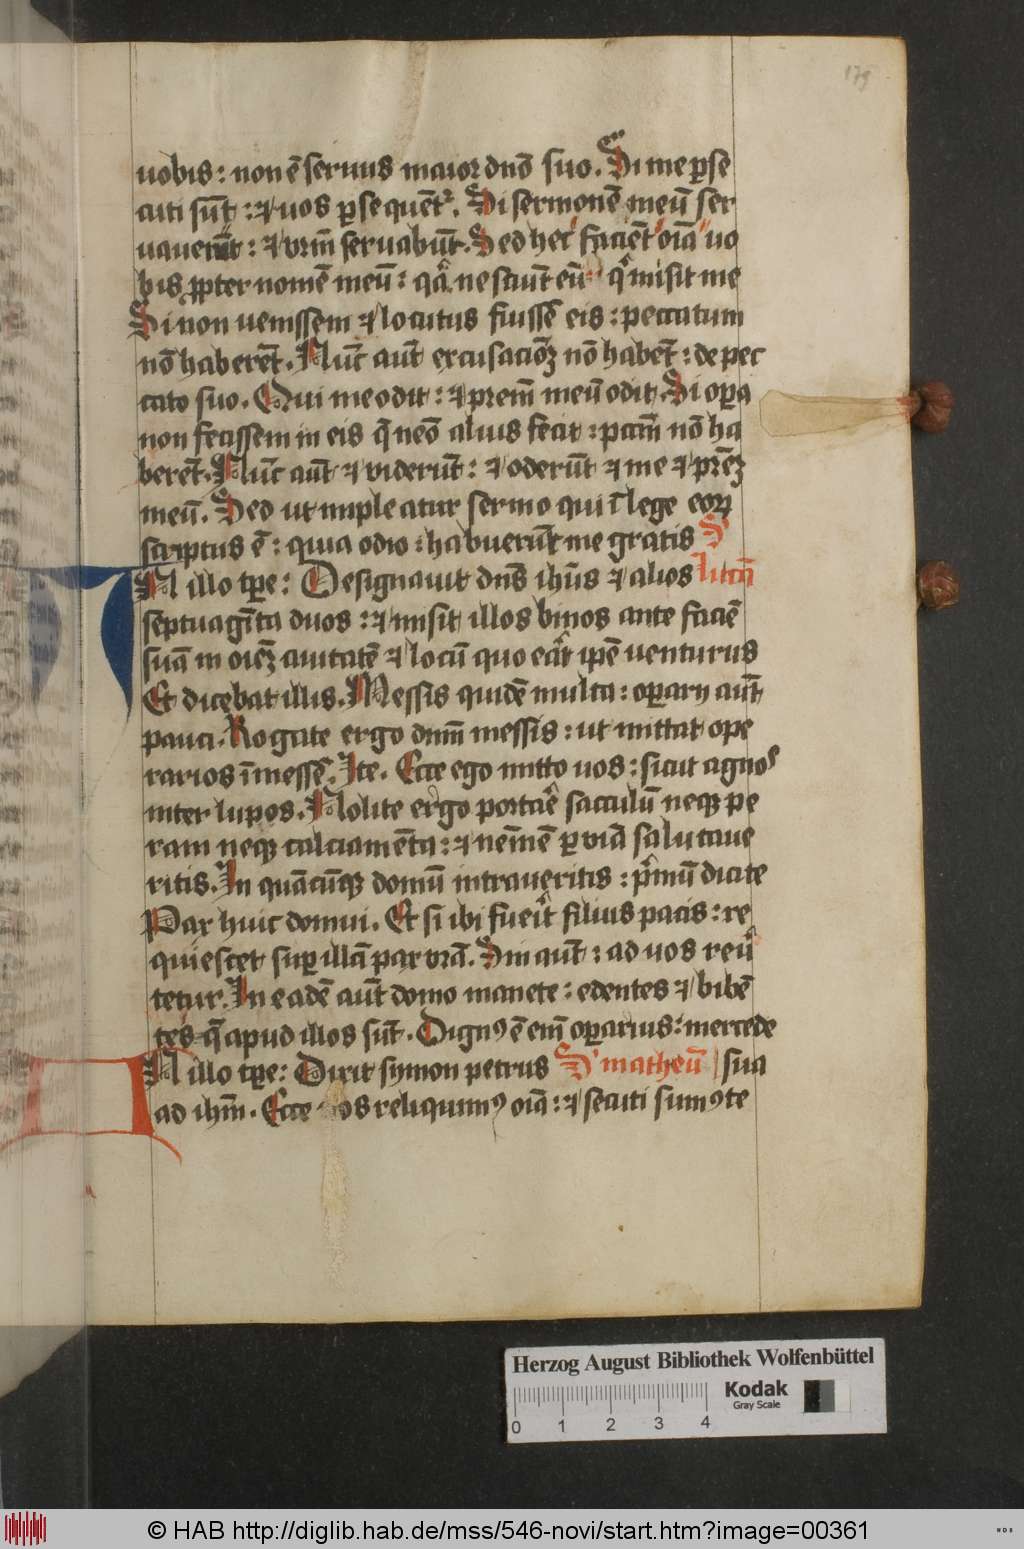 179
uobis : non ē seruus maior dnō suo . Si me ꝑse
cuti sūt : ⁊ uos ꝑsequent᷑ . Si sermonē meū ser
uauerūt : ⁊ vrm̄ seruabūt . Sed hec faciēt oīa uo
bis ꝓpter nomē meū : qͣ nesciūt eū qͥ misit me
Si non uenissem ⁊ locutus fuissē eis : peccatum
nō haberēt . Nūc aūt excusacōꝫ nō habēt : de pec
cato suo . Qui me odit : ⁊ prem̄ meū odit . Si oꝑa
non fecissem in eis q̄ nēo alius fecit : pccām nō ha
berēt . Nūc aūt ⁊ viderūt : ⁊ oderūt ⁊ me ⁊ prēꝫ
meū . Sed ut impleatur sermo qui ī lege eoꝝ
scriptus ē : quia odio : habuerūt me gratis S'
In illo tꝑe : Designauit dn̄s ihūs ⁊ alios lucā
septuagīta duos : ⁊ misit illos binos ante faciē
suā in oīeꝫ ciuitatē ⁊ locū quo eͣt ip̄e uenturus
Et dicebat illis . Messis quidē multa : oꝑarij aūt
pauci . Rogate ergo dnm̄ messis : ut mittat ope
rarios ī messē . Ite . Ecce ego mitto uos : sicut agnos
inter lupos . Nolite ergo portaͤ sacculū neqꝫ pe
ram neqꝫ calciamēta : ⁊ nemīē ꝑ viā salutaue
ritis . In quācūqꝫ domū intraueritis : pͥmū dicite
Pax huic domui . Et si ibi fueͥt filius pacis : re
quiescet suꝑ illā pax vrā . Sin aūt : ad uos reũ
tetur . In eadē aūt domo manete : edentes ⁊ bibē
tes q̄ apud illos sūt . Dignꝰ ē em̄ oꝑarius : mercede
In illo tꝑe : Dixit symon petrus S' matheū sua
ad ihm̄ . Ecce nos reliquimꝰ oīa : ⁊ secuti sumꝰ te
Herzog August Bibliothek Wolfenbüttel
0 1 2 3 4
Kodak
Gray Scale
© HAB http://diglib.hab.de/mss/546-novi/start.htm?image=00361